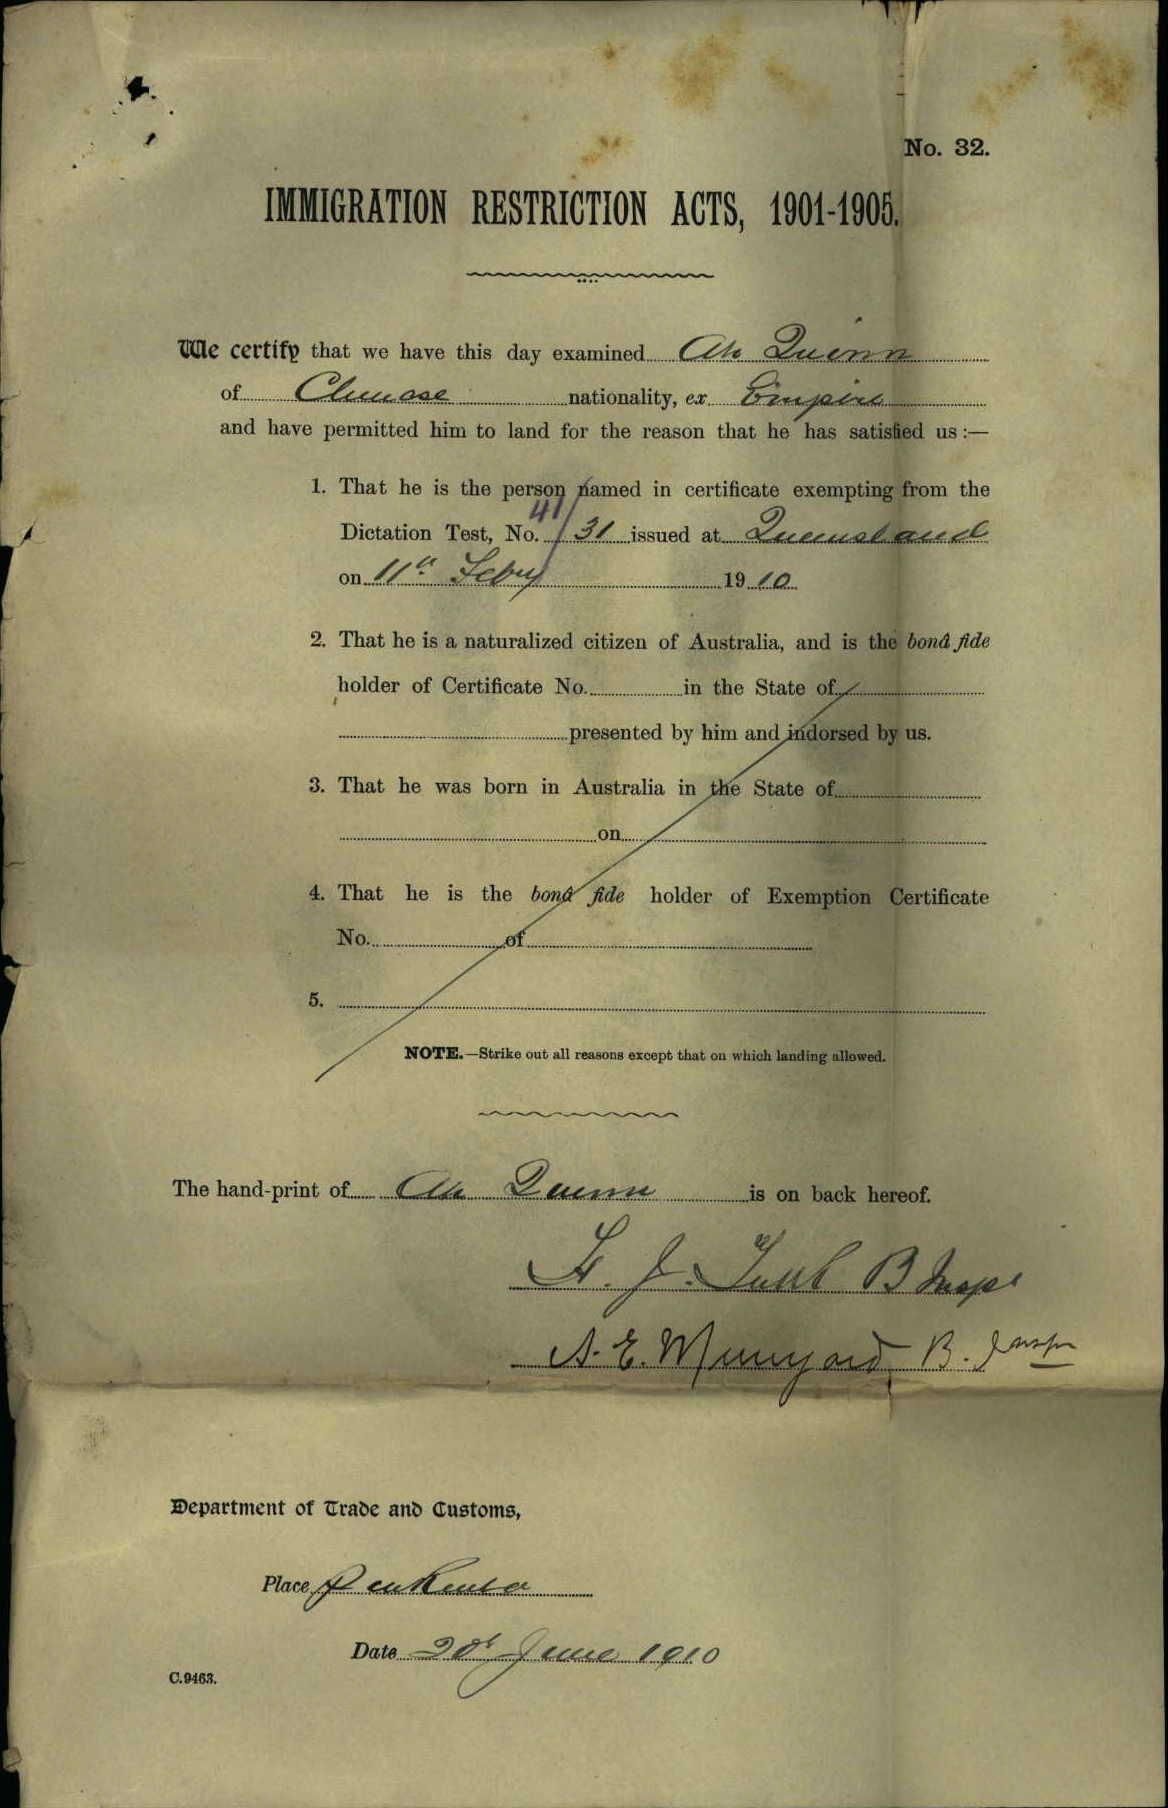 No. 32.
IMMIGRATION RESTRICTION ACTS, 1901-1905.
We certify that we have this day examined Ah Quinn
of Chinese nationality, ex Empire
and have permitted him to land for the reason that he has satisfied us :—
1. That he is the person named in certificate exempting from the
41/
Dictation Test, No. 31 issued at Queensland
on 11th Feby 1910
2. That he is a naturalized citizen of Australia, and is the bonâ fide
holder of Certificate No. in the State of
presented by him and indorsed by us.
3. That he was born in Australia in the State of
on
4. That he is the bonâ fide holder of Exemption Certificate
No. of
5.
NOTE.—Strike out all reasons except that on which landing allowed.
The hand-print of Ah Quinn is on back hereof.
J. B Inspr
A. E. Munyard B. Inspr
Department of Trade and Customs,
Place
Date 20th June 1910
C.9463.